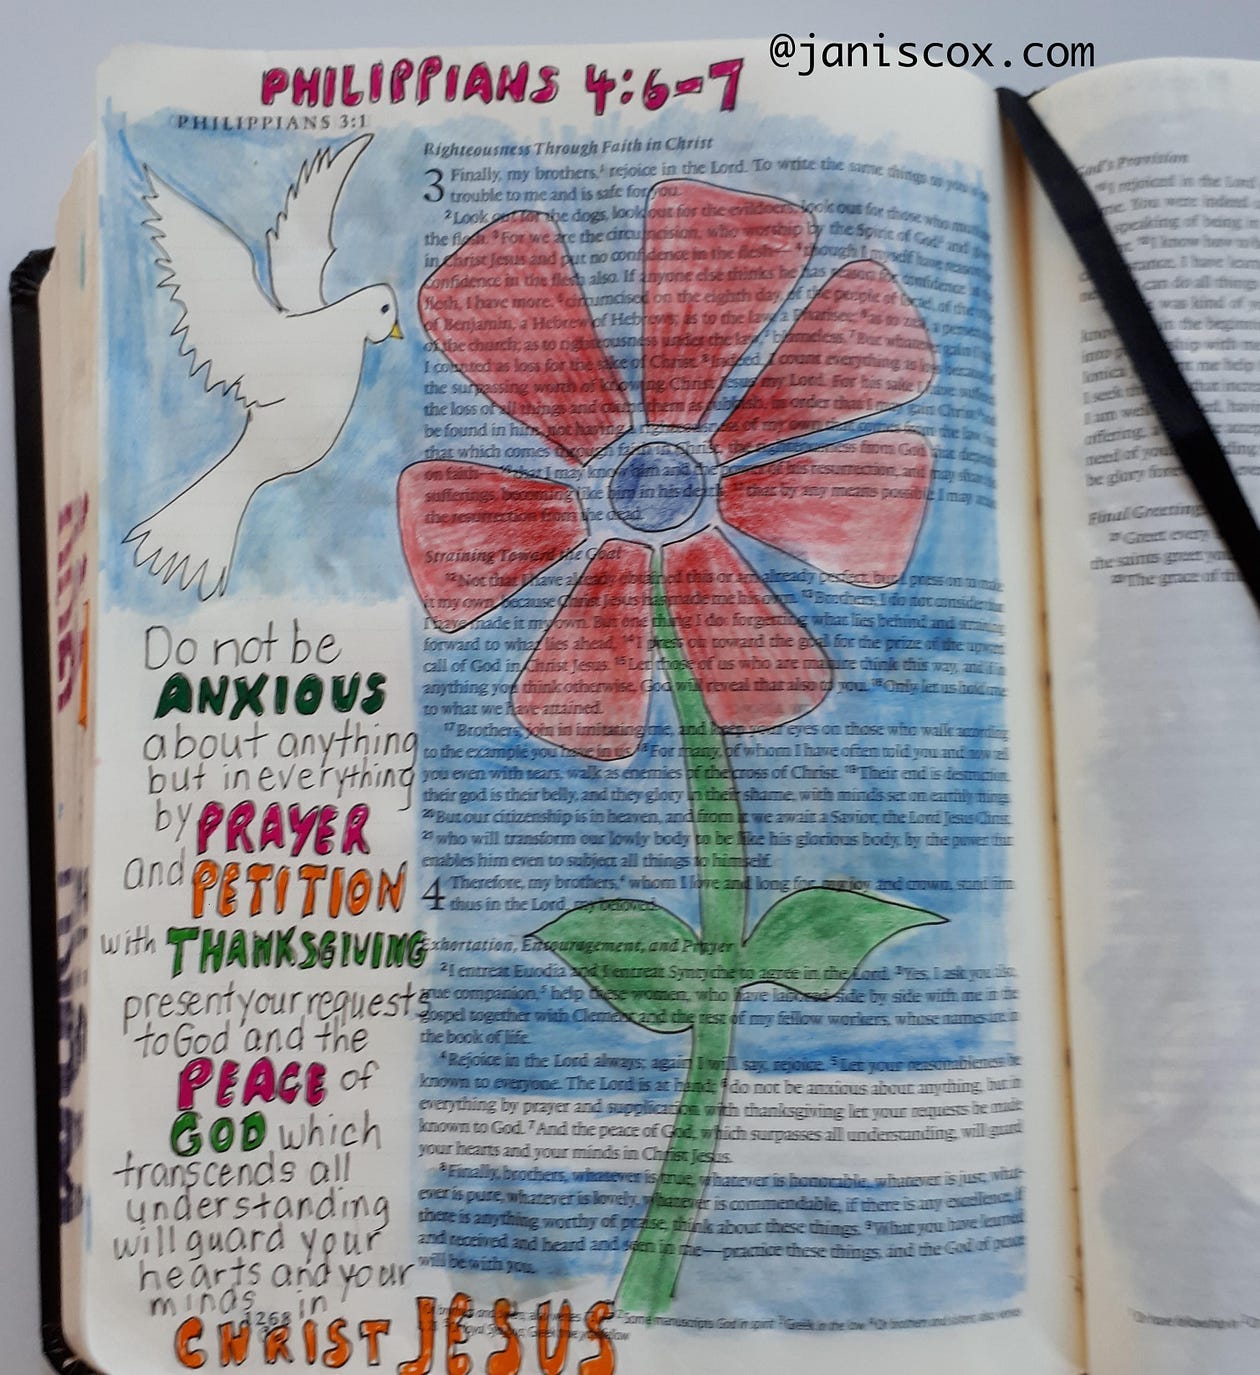 @janiscox.com
PHILIPPIANS 4:6-7
PHILIPPIANS 3:1
Do not be
ANXIOUS
about anything
but in everything
by PRAYER
and PETITION
with THANKSGIVING
present your requests
to God and the
PEACE of
GOD which
transcends all
understanding
will guard your
hearts and your
minds in
1268
CHRIST JESUS
Righteousness Through Faith in Christ
3 Finally, my brothers, rejoice in the Lord. To write the same things to you
trouble to me and is safe for you.
2 Look out for the dogs, look out for the evildoers, look out for those who
the flesh. 3 For we are the circumcision, who worship by the Spirit of God and
in Christ Jesus and put no confidence in the flesh— 4 though I myself have reason
confidence in the flesh also. If anyone else thinks he has reason for confidence in the
flesh, I have more: 5 circumcised on the eighth day, of the people of Israel, of the
of Benjamin, a Hebrew of Hebrews; as to the law, a Pharisee; 6 as to zeal, a
of the church; as to righteousness under the law, blameless. 7 But whatever gain I
I counted as loss for the sake of Christ. 8 Indeed, I count everything as loss because
the surpassing worth of knowing Christ Jesus my Lord. For his sake I have
the loss of all things and count them as rubbish, in order that I may gain Christ
be found in him, not having a righteousness of my own that comes from the law,
that which comes through faith in Christ, the righteousness from God that
on faith— that I may know him and the power of his resurrection, and may
sufferings, becoming like him in his death, that by any means possible I may
the resurrection from the dead.
Straining Toward the Goal
12 Not that I have already obtained this or am already perfect, but I press on to make
it my own, because Christ Jesus has made me his own. 13 Brothers, I do not consider
I have made it my own. But one thing I do: forgetting what lies behind and straining
forward to what lies ahead, 14 I press on toward the goal for the prize of the upward
call of God in Christ Jesus. 15 Let those of us who are mature think this way, and if in
anything you think otherwise, God will reveal that also to you. 16 Only let us hold
to what we have attained.
17 Brothers, join in imitating me, and keep your eyes on those who walk according
to the example you have in us. 18 For many, of whom I have often told you and now tell
you even with tears, walk as enemies of the cross of Christ. 19 Their end is destruction,
their god is their belly, and they glory in their shame, with minds set on earthly things.
20 But our citizenship is in heaven, and from it we await a Savior, the Lord Jesus Christ,
21 who will transform our lowly body to be like his glorious body, by the power that
enables him even to subject all things to himself.
4 Therefore, my brothers, whom I love and long for, my joy and crown, stand firm
thus in the Lord, my beloved.
Exhortation, Encouragement, and Prayer
2 I entreat Euodia and I entreat Syntyche to agree in the Lord. 3 Yes, I ask you also,
true companion, help these women, who have labored side by side with me in the
gospel together with Clement and the rest of my fellow workers, whose names are in
the book of life.
4 Rejoice in the Lord always; again I will say, rejoice. 5 Let your reasonableness be
known to everyone. The Lord is at hand; 6 do not be anxious about anything, but in
everything by prayer and supplication with thanksgiving let your requests be made
known to God. 7 And the peace of God, which surpasses all understanding, will guard
your hearts and your minds in Christ Jesus.
8 Finally, brothers, whatever is true, whatever is honorable, whatever is just, what-
ever is pure, whatever is lovely, whatever is commendable, if there is any excellence, if
there is anything worthy of praise, think about these things. 9 What you have learned
and received and heard and seen in me—practice these things, and the God of peace
will be with you.
God's Provision
rejoiced in the Lord
You were indeed
speaking of being
can do all things
was kind of
in the beginning
Final Greetings
Greet every
the saints greet you
The grace of the